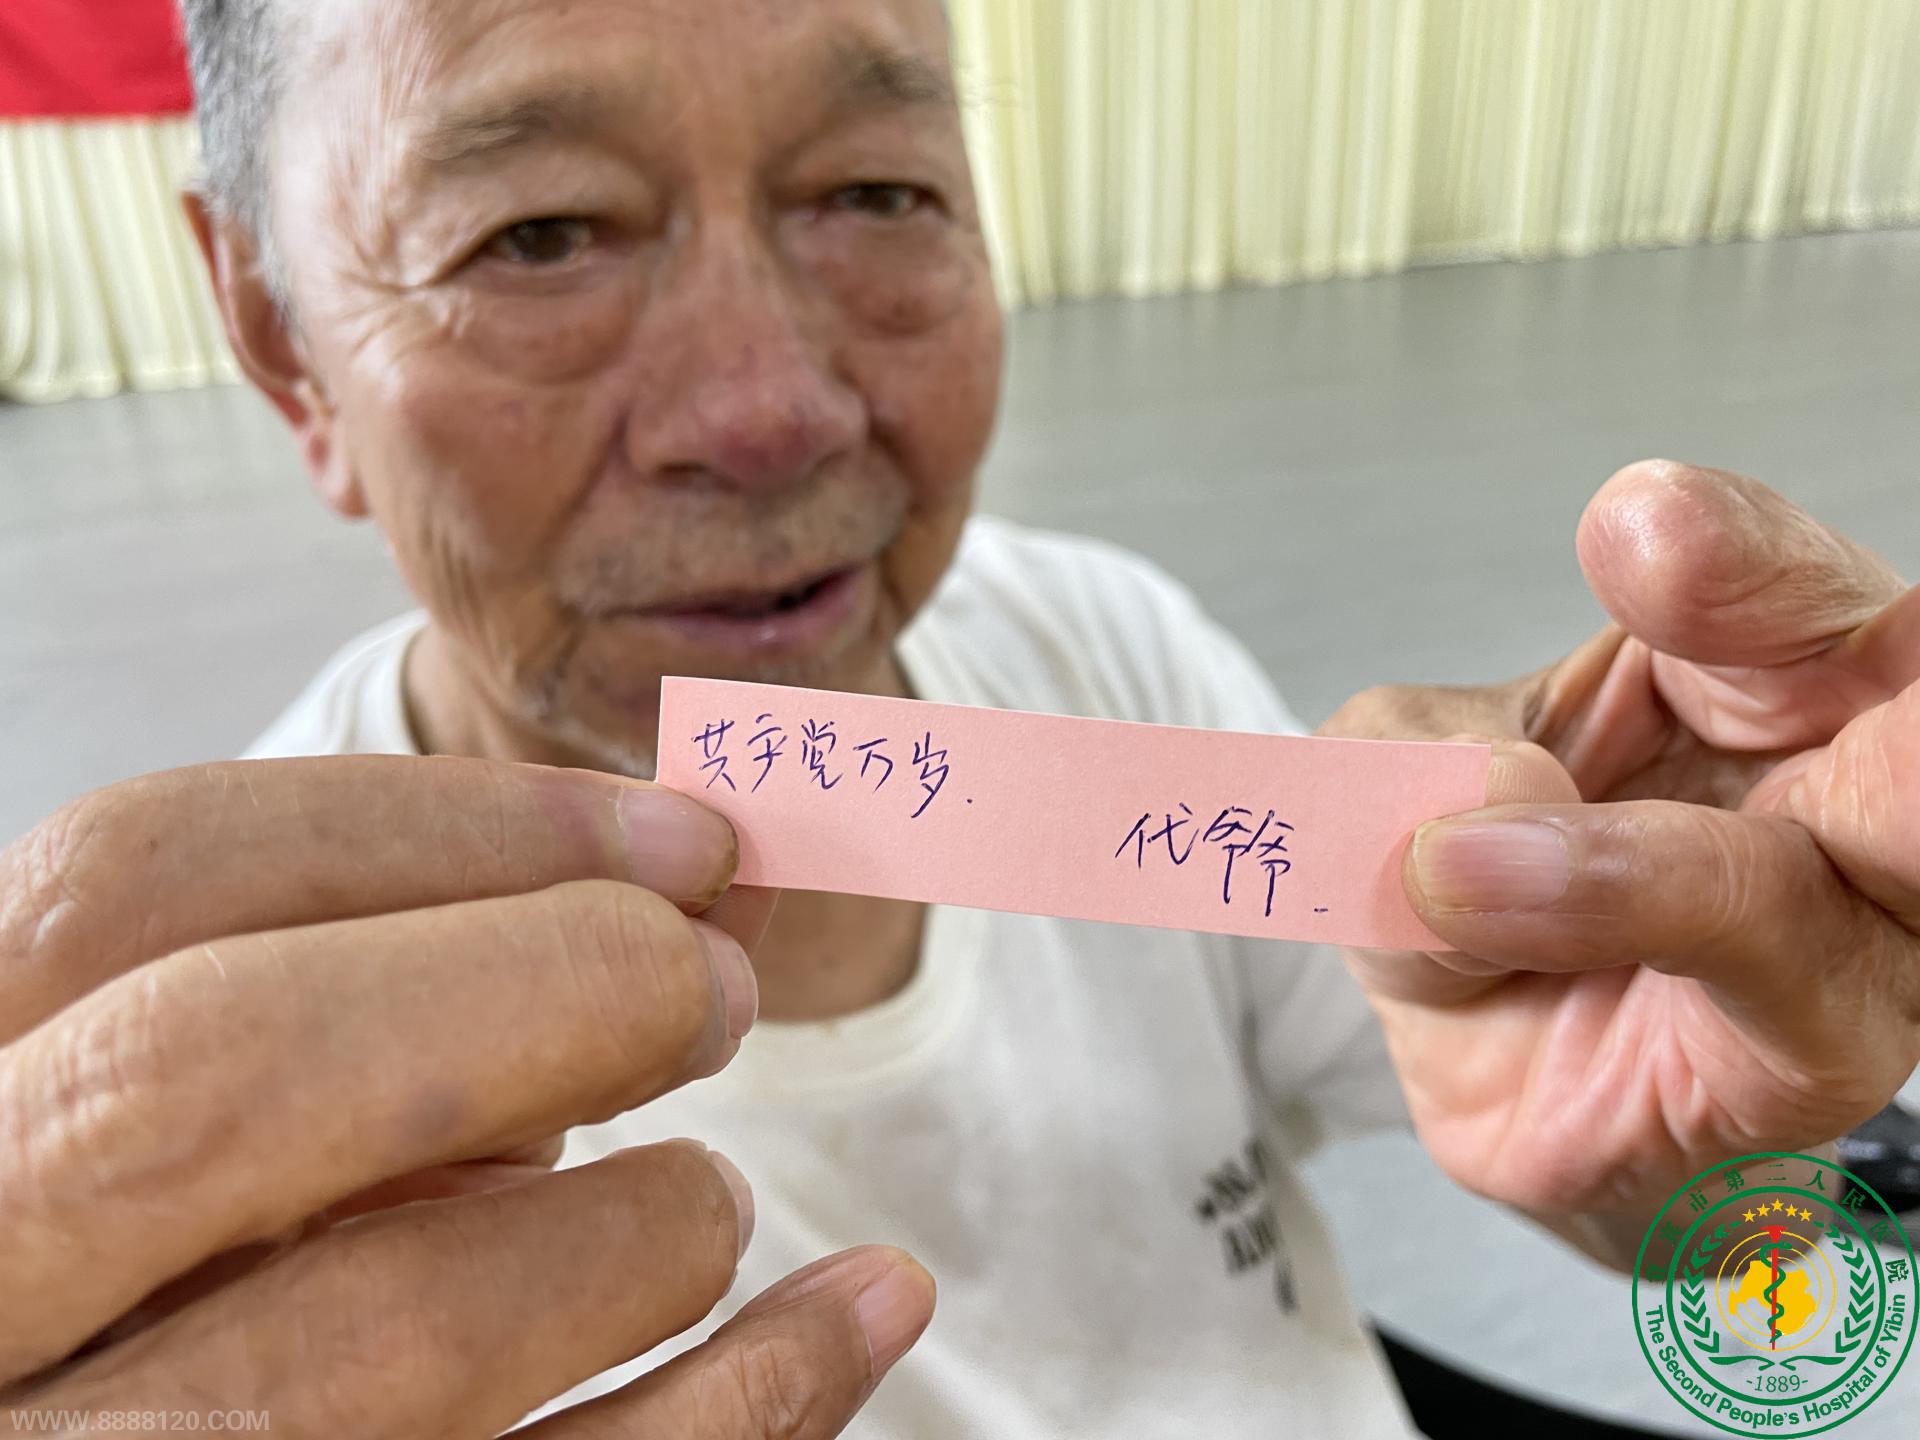 共产党万岁.
代爷爷.
宜宾市第二人民医院
The Second People's Hospital of Yibin
-1889-
WWW.8888120.COM